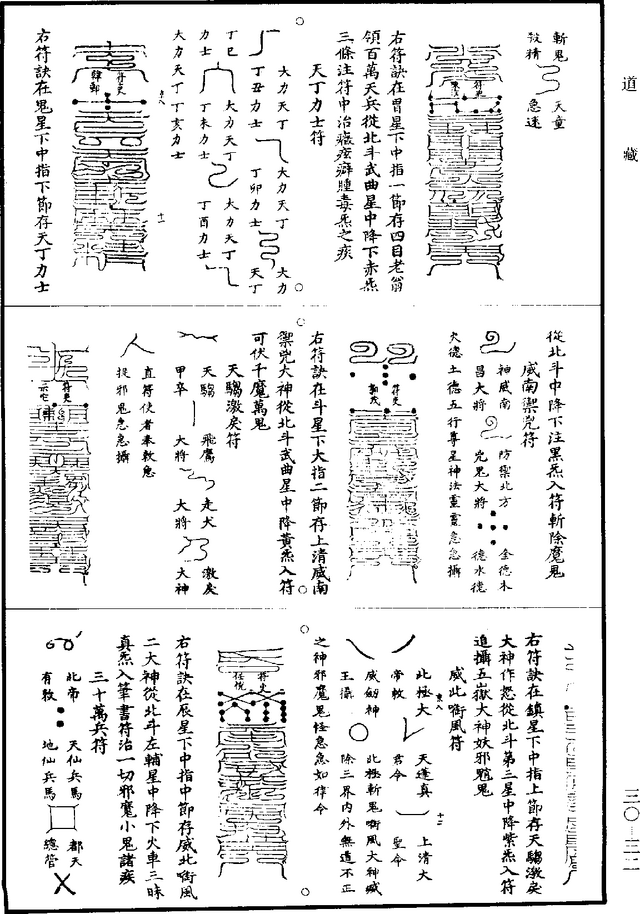 道藏
斬鬼 天童
殺精 急速
符吏
右符訣在胃星下中指一節存四目老翁
領百萬天兵從北斗武曲星中降下赤炁
三條注符中治癥痃癖腫毒炁之疾
天丁力士符
大力天丁 大力天丁 大力
丁丑力士 丁卯力士 天丁
丁巳 大力天丁 大力天丁
力士 丁未力士 丁酉力士
大力天丁丁亥力士
符吏
十一
右符訣在鬼星下中指下節存天丁力士
從北斗中降下注黑炁入符斬除魔鬼
威南禦兇符
神威南 防禦北方 金德木
昌大將 兇鬼大將 德水德
火德土德五行尊星神法靈靈急急攝
符吏
右符訣在斗星下大指二節存上清威南
禦兇大神從北斗武曲星中降黃炁入符
可伏千魔萬鬼
天騶激戾符
天騶 飛鷹 走犬 激戾
甲卒 大將 大將 大神
直符使者奉敕急
捉邪鬼急急攝
符吏
右符訣在鎮星下中指上節存天騶激戾
大神作怒從北斗第三星中降紫炁入符
追攝五嶽大神妖邪魍鬼
威北衝風符
北極大 天蓬真 上清大
帝敕 君令 聖令
威劍神 北極斬鬼衝風大神威
王攝 除三界內外無道不正
十二
之神邪魔鬼怪急急如律令
符吏
右符訣在辰星下中指中節存威北衝風
二大神從北斗左輔星中降下火車三昧
真炁入筆書符治一切邪魔小鬼諸疾
三十萬兵符
北帝 天仙兵馬 都天
有敕 地仙兵馬 總管
三〇—三二